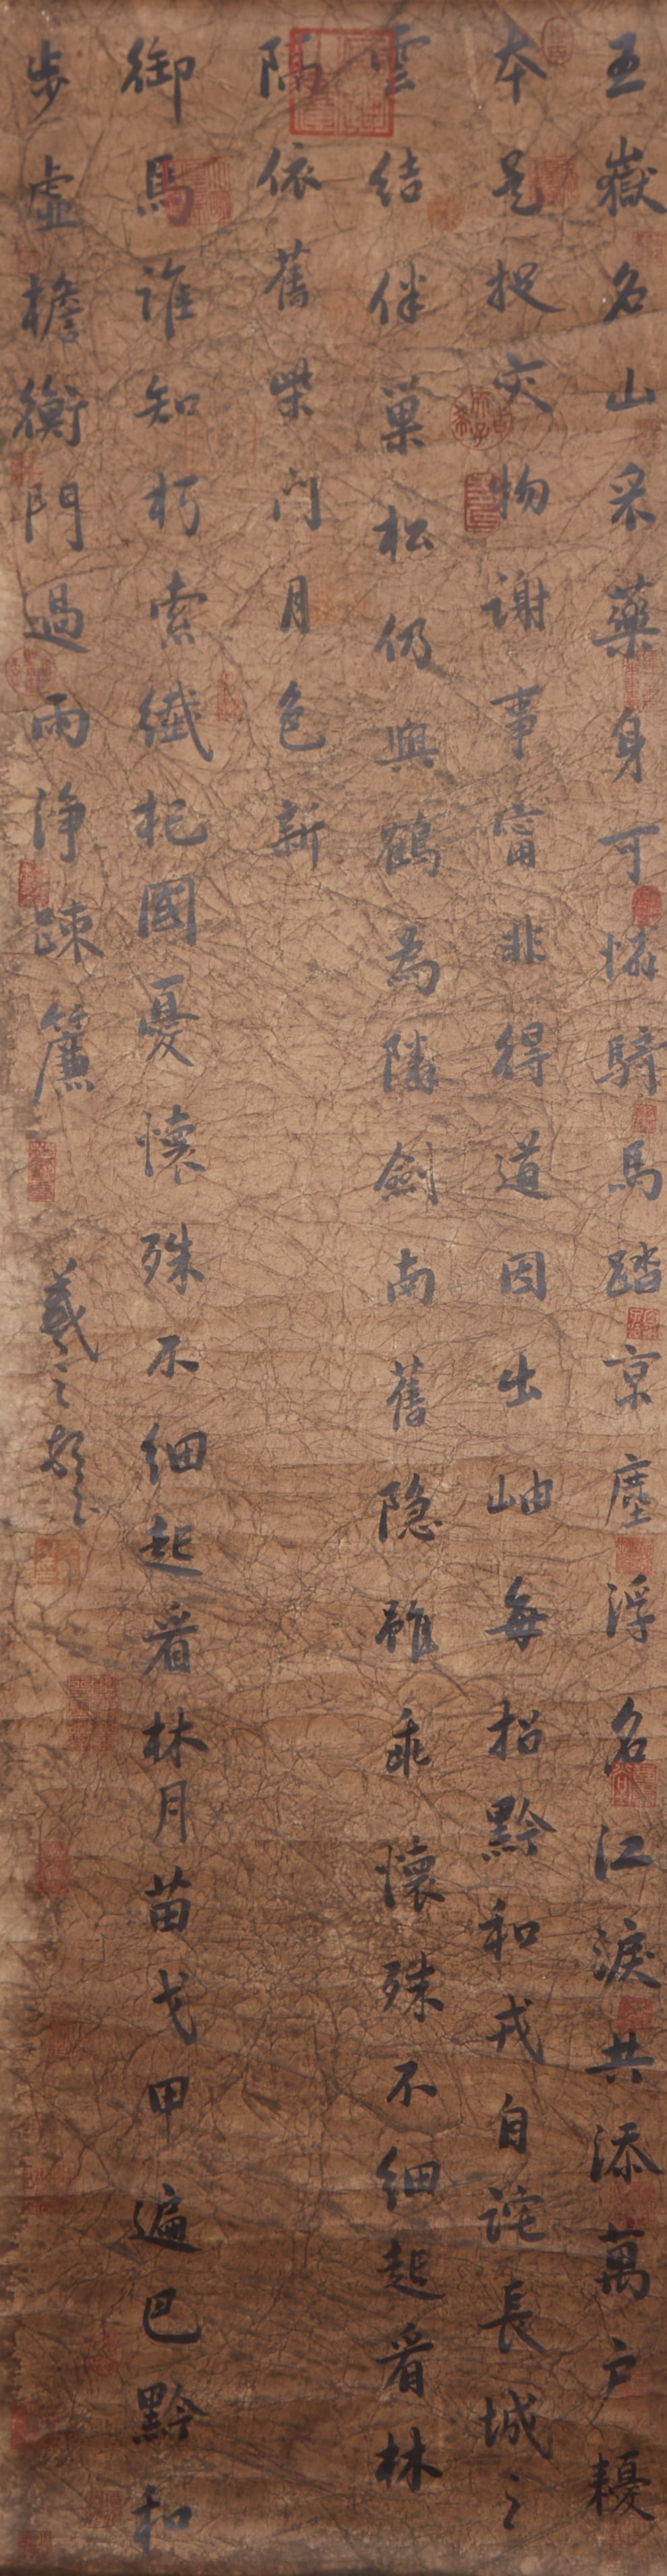 五嶽名山采藥身可憐騎馬踏京塵浮名江淚共添萬戶耰
本是捉灾物謝事甯非得道因出岫每招黔和戎自詫長城之
雲結伴巢松仍與鶴為隣劍南舊隐雖乖懷殊不细起看林
隔依舊柴门月色新
御馬谁知朽索纖杞國憂懷殊不细起看林月苗戈甲遍巴黔和
步虚檐衡門過雨浄踈簾
羲之頓首